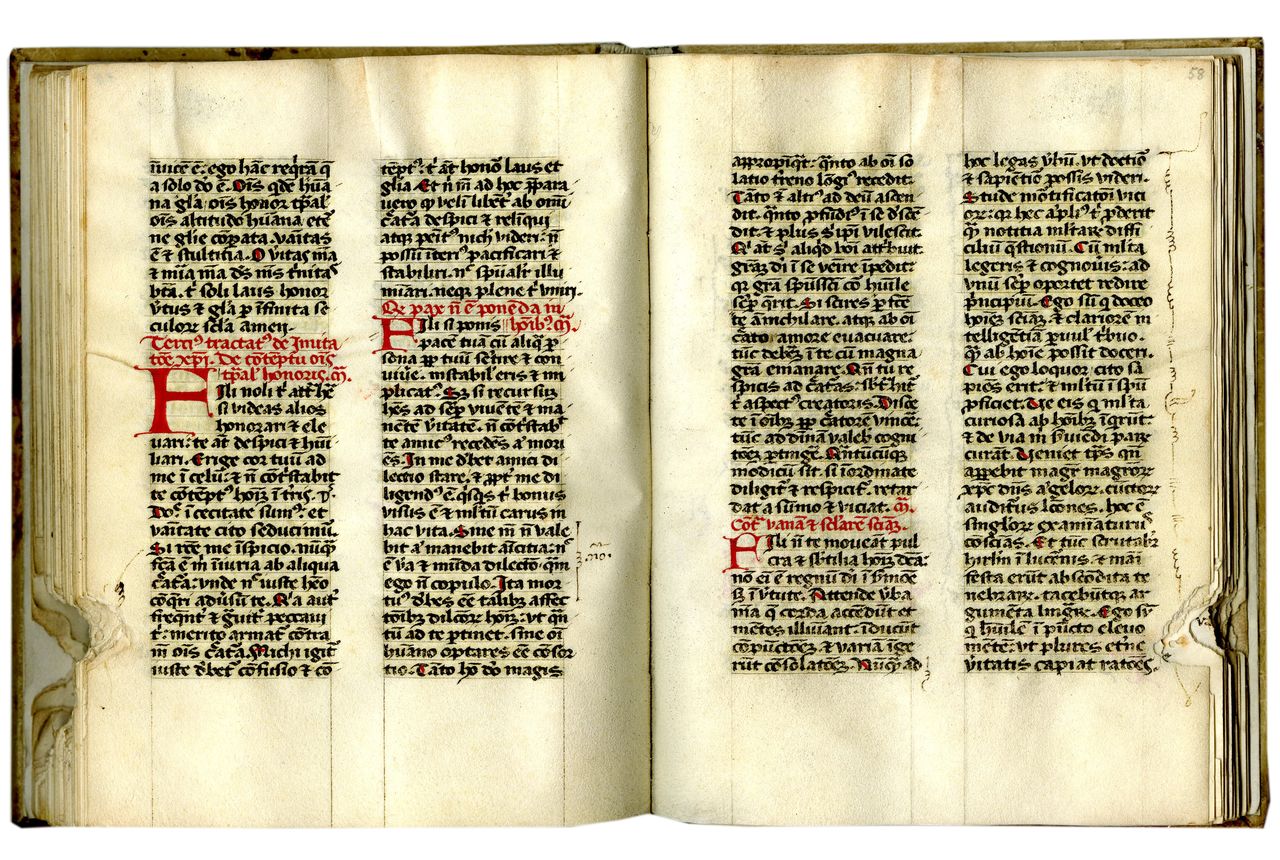 iuicē ē. ego hāc reqͥrā q̄
a solo dō ē. Oīs qͥdē hūa
na gl̄a. oīs honor tp̄al̓
oīs altitudo hūana etn̄e
ne gl̓ie cōpata. vaītas
ē & stultitia. O vītas mā
& mīa mīa ds̄ ms̄ tͥnitas
btā. tͥ soli laus honor
v̓tus & gl̓a p īfinita se
culorꝝ scl̓a amen.
Tercī tractatꝰ de Imita
tōe xp̄i. De cōteptu oīs
tp̄al̓ honoris. cm̄.
Fili noli tͥ att̓he
si videas alios
honorari & ele
uari: te āt despici & hūi
liari. Erige cor tuū ad
me ī celū: & nō cōtstabit
te cōteptꝰ hoīꝫ ī tr̓is. D.
Do᷑. ī cecitate sumꝰ. et
vaītate cito seducimͬ.
Si r̄ctē me īspicio. nūqͣ
fc̄a ē m̄ iniuria ab aliqua
c̓atͣa: vnde nͨ iuste hēo
cōqͥri aduͥsū te. Qͥa aut̄
freqnt̓ & gͣuit̓ peccaui
tͥ: merito armat̓ cōtra
m̄ oīs c̓atͣa. Michi igit̓
iuste dͤbet̓ cōfusio & cō
tēptꝰ: tͥ āt honō laus et
gl̓ia. Et nͥ m̄ ad hoc p̄para
uero qͥ velī libēt̓ ab omī
c̓atͣa despici & relīqui
atqꝫ penitꝰ nich̓ videri: nō
possū īteriꝰ pacificari &
stabiliri. nͨ spūalit̓ illu
mīari. neqꝫ plene tͥ vniri.
Qͥ pax nō ē ponēda in
Fili si ponis hoībꝫ. cm̄.
pacē tuā cū aliqͣ p
sona ꝓpt̓ tuū sētire & con
viuē: instabil̓ eris & im
plicatꝰ. Sꝫ si recursū
hēs ad semp̄ viuētē & ma
nētē v̓itatē. nō cōtstabit̓
te amicꝰ recedēs aͭ mori
ēs. In me dͤbet amici di
lectio stare. & ꝓpt̓ me di
ligendꝰ ē. qͥsqͥs tͥ bonus
visus ē & ml̓tū carus in
hac vita. Sine m̄ nō vale
bit aͭ manebit amīcitia: nͨ
ē v̓a & mūda dilectō. qͣm
ego nō copulo. Ita mor
tuꝰ dͤbes ēe talibꝫ affec
tōibꝫ dil̓corꝝ hoīꝫ: vt qͣn
tū ad te ptinet. sine oī
humano optares ēe cōsor
tio. Tāto hō do̓ magis
58
appropīqͣt: qͣnto ab oī so
latio tͬreno lōgiꝰ recedit.
Tāto & altiꝰ ad deū ascen
dit. qͣnto ꝓfūdiꝰ ī se dͤscē
dit. & plus sͥ ip̄i vilescit.
Qͥ āt sͥ aliqͥd boī att̓buit:
grāꝫ di ī se venīre īpedit:
qꝛ grā spūssc̄i cō hūile
semp̄ qͥrit. Si scires p̓fc̄te
te ānichilare. atqꝫ ab oī
c̓ato amore evacuare.
tūc dͤbeē ī te cū magna
grā emanare. Qn̄ tu re
spicis ad c̓atͣas: sbt̓hit̓
tͥ aspectꝰ creatoris. Disce
te ī oībꝫ ꝓp c̓atorē vīncē:
tūc ad dīnā valebͥ cogni
tōeꝫ ptingē. Qntūcūqꝫ
modicū sit. si īordinate
diligit̓ & respicit̓. retar
dat a sūmo & viciat. cm̄.
Cōt̓ vanā & scl̓arē sciāꝫ.
Fili nō te moveāt pul
cra & sbtilia hoīꝫ dc̄a:
nō ei ē regnū di ī sͤmōe
sꝫ ī v̓tute. Attende v̓ba
mīa qͥ corda accēdūt et
mētes illuīant: īducūt
cōpūctōeꝫ & varīa īge
rūt cōsolatōeꝫ. Nūqͣ ad
hoc legas v̓bū. vt doctiō
& sapiētiō possis videri.
Stude mōtificatōi vici
orꝝ: qꝛ hec āpliꝰ tͥ ꝓderit
qͣ notitia ml̓tarꝝ diffi
ciliū qͤstionū. Cū ml̓ta
legeris & cognoūis: ad
vnū semp̄ oportet redire
pͥncipiū. Ego sū qͥ doceo
hoīeꝫ sciāꝫ: & clariorē in
telligentiā pvul̓ tͥbuo.
qͣ ab hoīe possit doceri.
Cui ego loquor cito sa
piēs erit: & ml̓tū ī spū
ꝓficiet. Ve eis qͥ ml̓ta
curiosa ab hoībꝫ īqͥrūt:
& de via m̄ sͤuiēdi parꝝ
curāt. Veniet tp̄s qn̄
appebit mag̓r mag̓rorꝝ
xp̄c dn̄s āgelorꝝ. cūctorꝝ
auditus lc̄ones. hoc ē
sīnglorꝝ examīaturꝰ
cōsciās. Et tūc scrutabr̄
hirl̓m ī lucernis: & māi
festa erūt abscōdita te
nebrarꝝ. tacebūtqꝫ ar
gumēta līgͣrꝝ. Ego sū
qͥ hūilē ī pūcto elevo
mētē: vt plures etn̄e
v̓itatis capiat rac̄ōes.